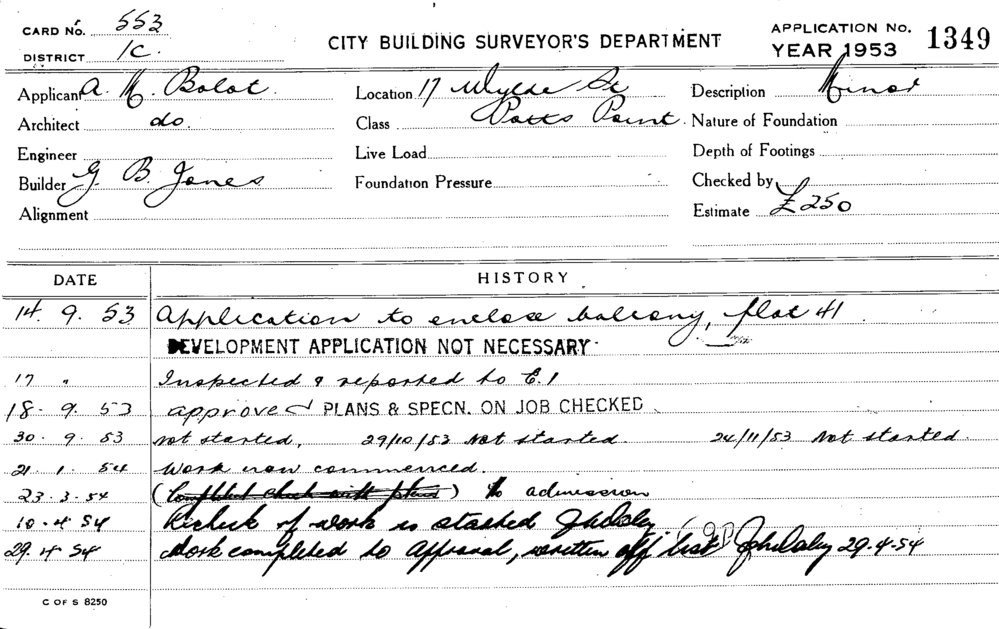 CARD No. 553
DISTRICT 1C.
CITY BUILDING SURVEYOR'S DEPARTMENT
APPLICATION No. 1349
YEAR 1953
Applicant A. M. Bolot. Location 17 Wylde St Description Minor
Architect do. Class Potts Point. Nature of Foundation
Engineer Live Load Depth of Footings
Builder G. B. Jones Foundation Pressure Checked by
Alignment Estimate £250
DATE HISTORY
14. 9. 53 Application to enclose balcony, flat 41
DEVELOPMENT APPLICATION NOT NECESSARY
17 " Inspected & reported to C.I
18. 9. 53 approved PLANS & SPECN. ON JOB CHECKED
30. 9. 53 not started, 29/10/53 Not started. 24/11/53 Not started.
21. 1. 54 Work now commenced.
23.3.54 ( ) No admission
10.4.54 Recheck of work is started
29.4.54 Work completed to Approval, written off list 29.4.54
C OF S 8250